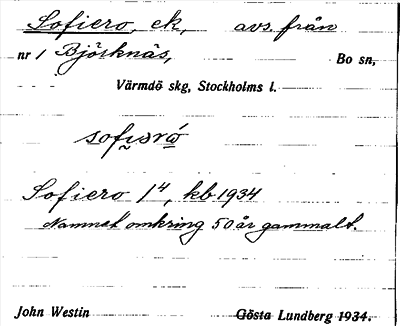 Sofiero, ek, avs. från
nr 1 Björknäs, Bo sn,
Värmdö skg, Stockholms l.
Sofiero 1⁴, kb 1934
Namnet omkring 50 år gammalt.
John Westin Gösta Lundberg 1934.